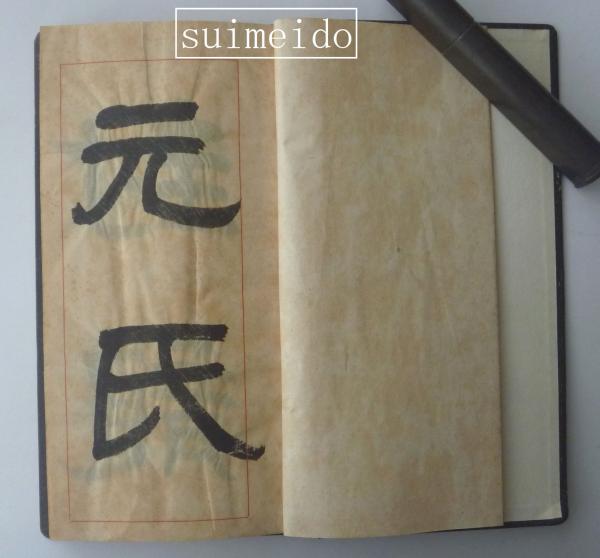 suimeido
元
氏